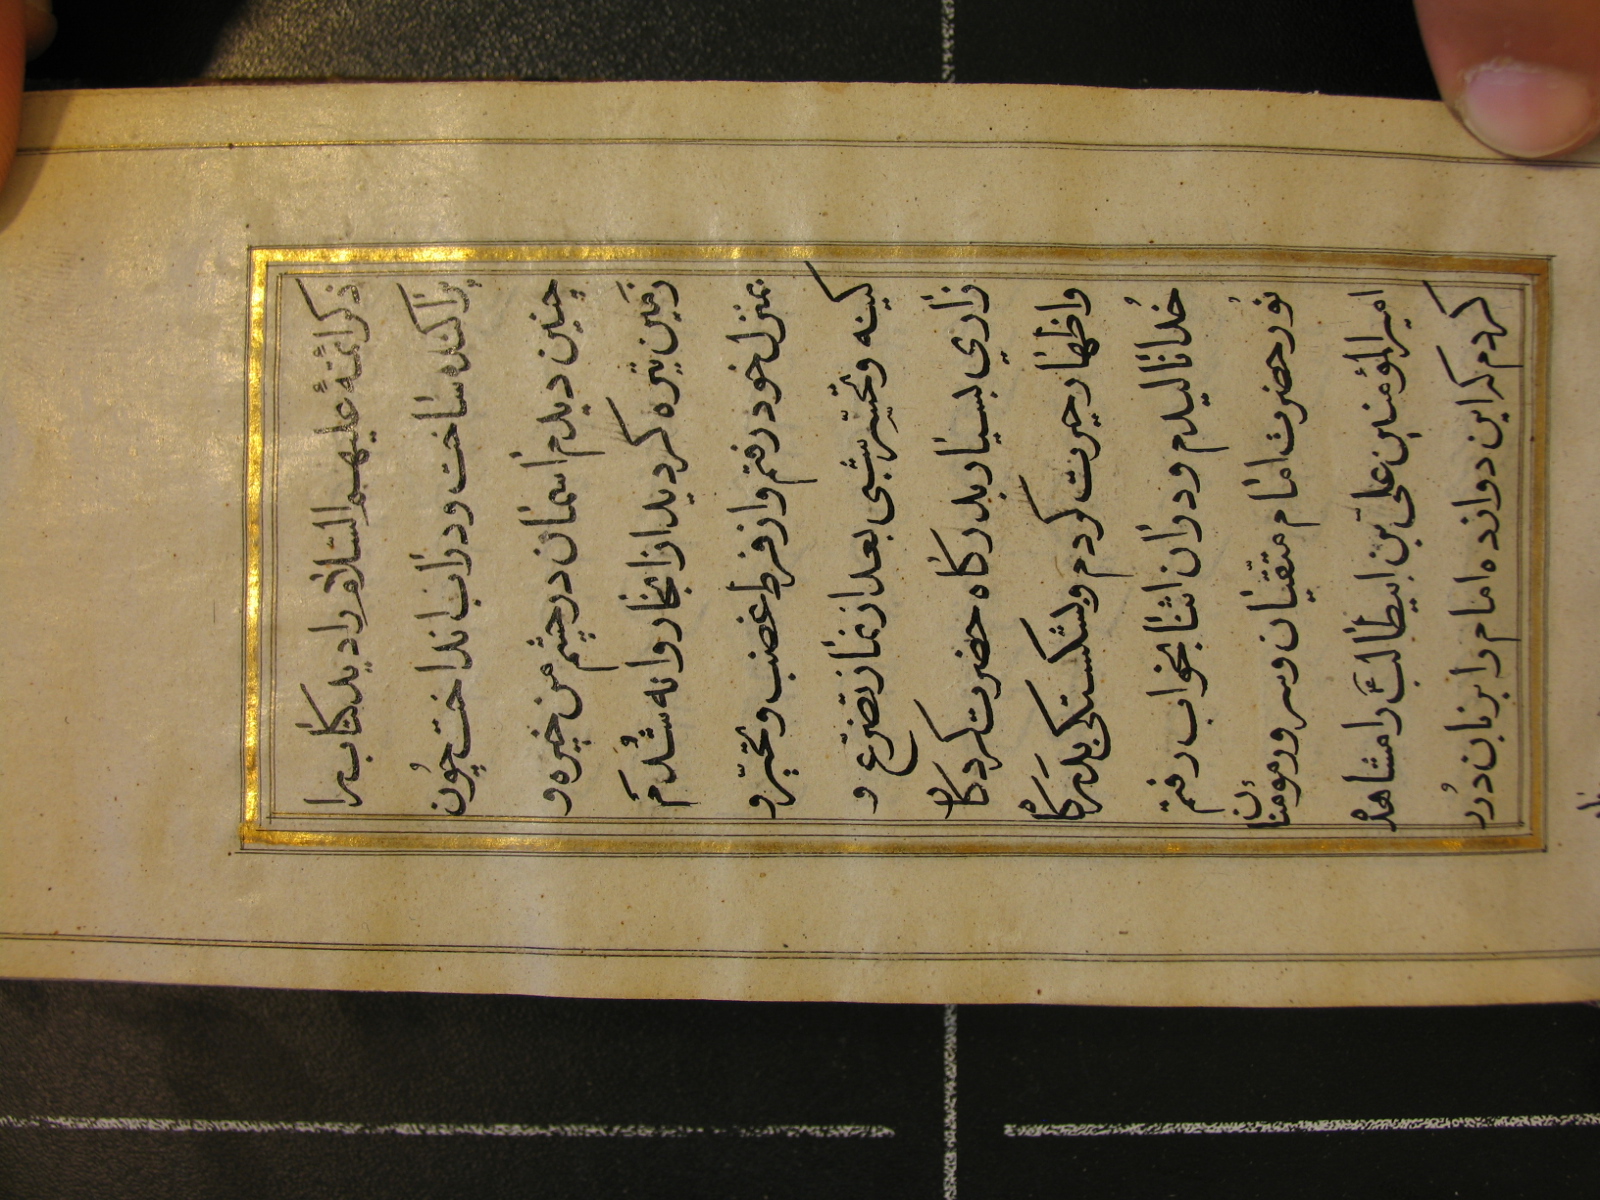 ذکر ائمّهٔ علیهم السّلام را دید کتاب را
پراکنده ساخت و در آب انداخت چُون
چنین دیدم آسمان در چشم من خیره و
زمین تیره کردید از انجا روانه شُدم
بمنزل خود رفتم و از فرط غضب و تحیّر و
کینه و تحسّر شبی بعد از نماز تضرّع و
زاری بسیار بدرکاه حضرت کردکار
و اظهار حیرت کردم و بشکستکی بدرکاه
خُدا نالیدم و در ان اثنا بخواب رفتم
نور حضرت امام متقیان و سرور مومنان
امیر المؤمنین علی بن ابیطالب ع را مشاهده
کردم که این دوازده امام را بر زبان دُرر